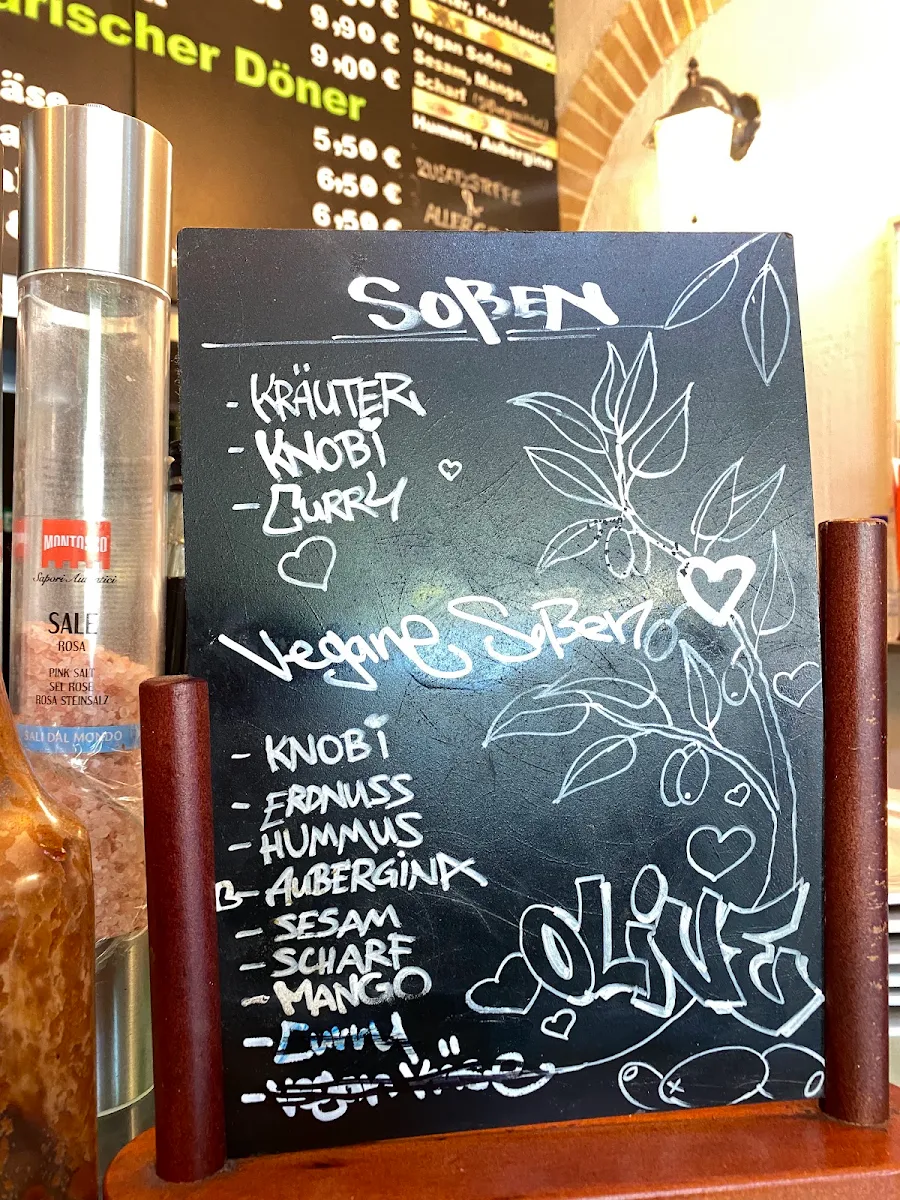 9,90 €
9,00 €
arischer Döner
5,50 €
6,50 €
6,50 €
Knoblauch,
Vegan Soßen
Sesam, Mango,
Scharf
Humus, Aubergine
ZUSATZSTOFFE
&
SOßEN
- KRÄUTER
- KNOBi
- CURRY
Vegane Soßen
- KNOBi
- ERDNUSS
- HUMMUS
- AUBERGiNA
- SESAM
- SCHARF
- MANGO
- Curry
OLiVE
MONTOSCO
Sapori Autentici
SALE
ROSA
PINK SALT
SEL ROSE
ROSA STEINSALZ
SALI DAL MONDO